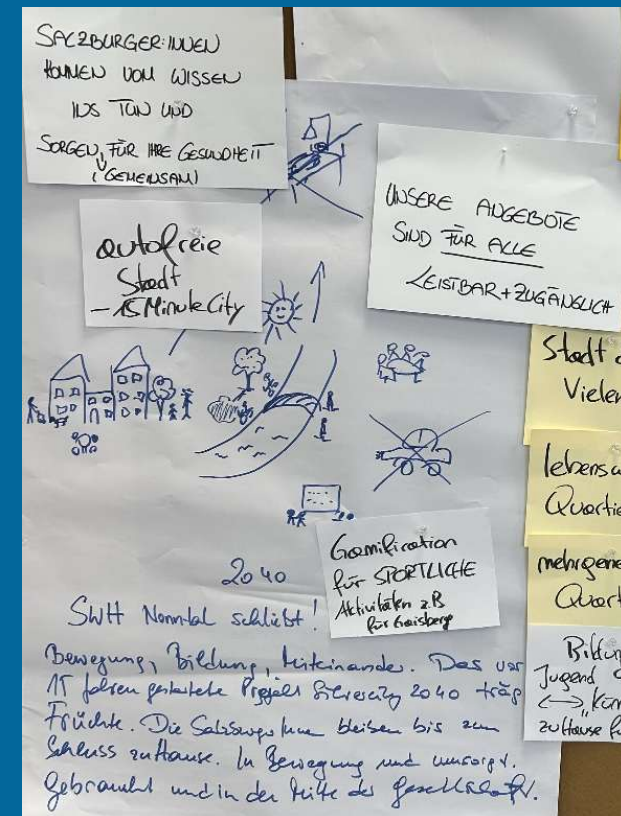 SALZBURGER:INNEN
KOMMEN VOM WISSEN
INS TUN UND
SORGEN FÜR IHRE GESUNDHEIT
(GEMEINSAM)
autofreie
Stadt
- 15 Minute City
UNSERE ANGEBOTE
SIND FÜR ALLE
LEISTBAR + ZUGÄNGLICH
Stadt d
Vielen
lebensw
Quartie
mehrgene
Quart
Bildun
Jugend
zu Hause
Gamification
für SPORTLICHE
Aktivitäten z.B
für Gaisberg
2040
SWH Nonntal schließt!
Bewegung, Bildung, Miteinander. Das vor
15 Jahren gestartete Projekt Silvercity 2040 träg
Früchte. Die bleiben bis zum
Schluss zu Hause. In Bewegung und umsorgt.
Gebraucht und in der Mitte der Gesellschaft.